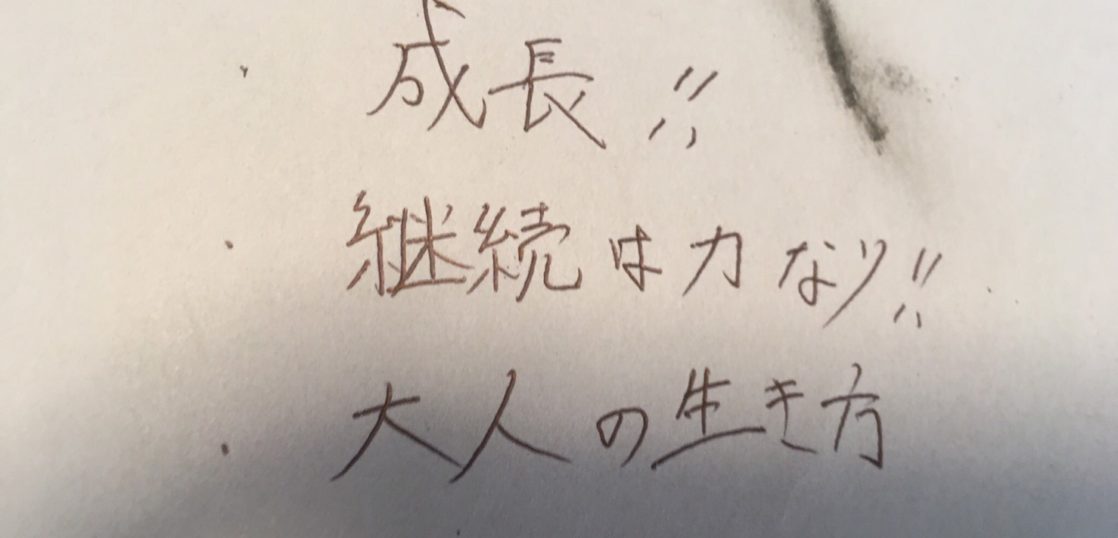 ・成長!!
・継続は力なり!!
・大人の生き方